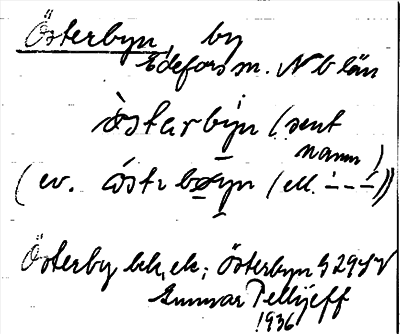 Österbyn, by
Edefors sn. Nb län
òstarbi̇̀n (sent
namn)
(ev. óstr bøyn (ell. ---))
Österby bek, ek; Österbyn G 29 SV
Gunnar Pellijeff
1936